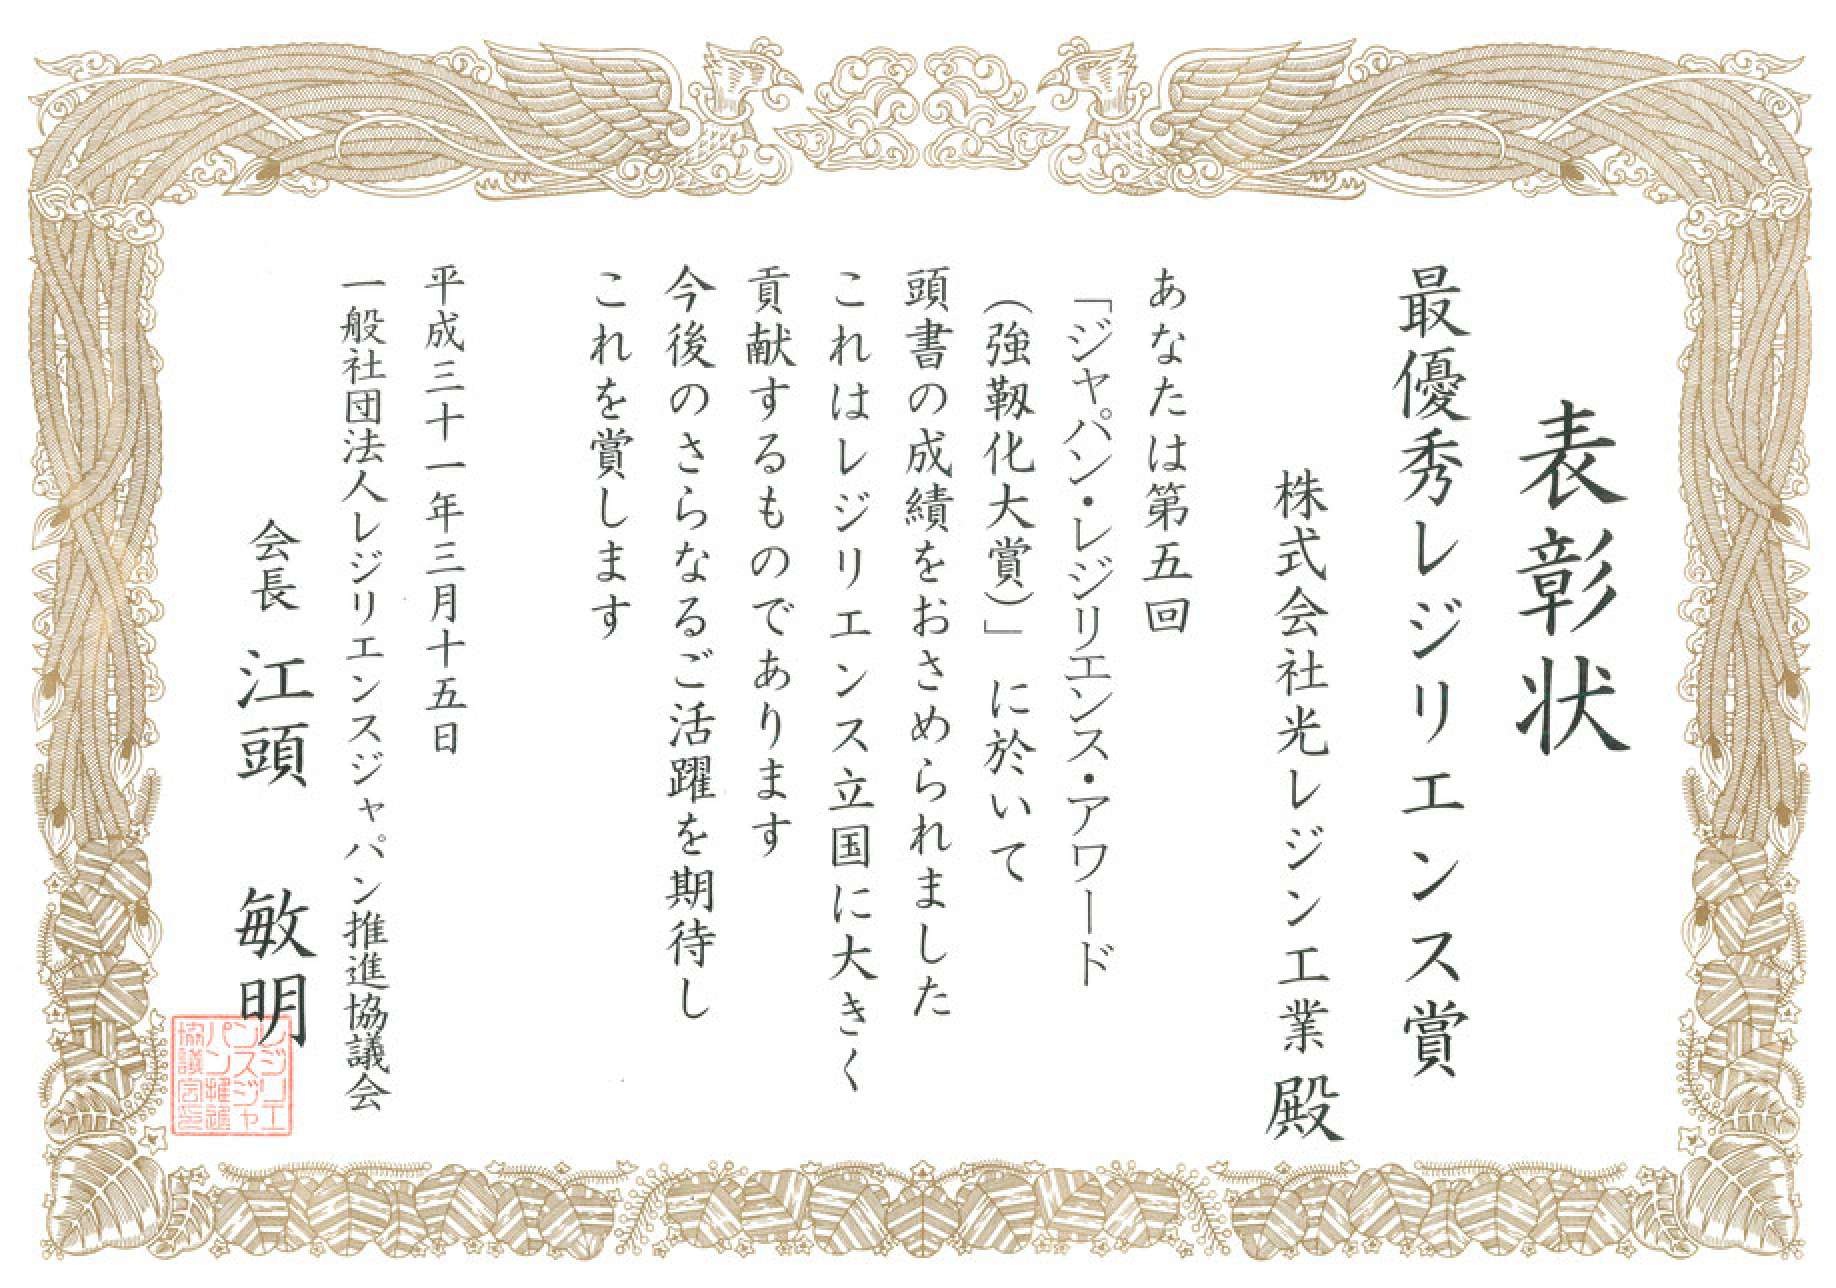 表彰状
最優秀レジリエンス賞
株式会社光レジン工業 殿
あなたは第五回
「ジャパン・レジリエンス・アワード
(強靱化大賞)」に於いて
頭書の成績をおさめられました
これはレジリエンス立国に大きく
貢献するものであります
今後のさらなるご活躍を期待し
これを賞します
平成三十一年三月十五日
一般社団法人レジリエンスジャパン推進協議会
会長 江頭 敏明
レジリエ
ンスジャ
パン推進
協議会印